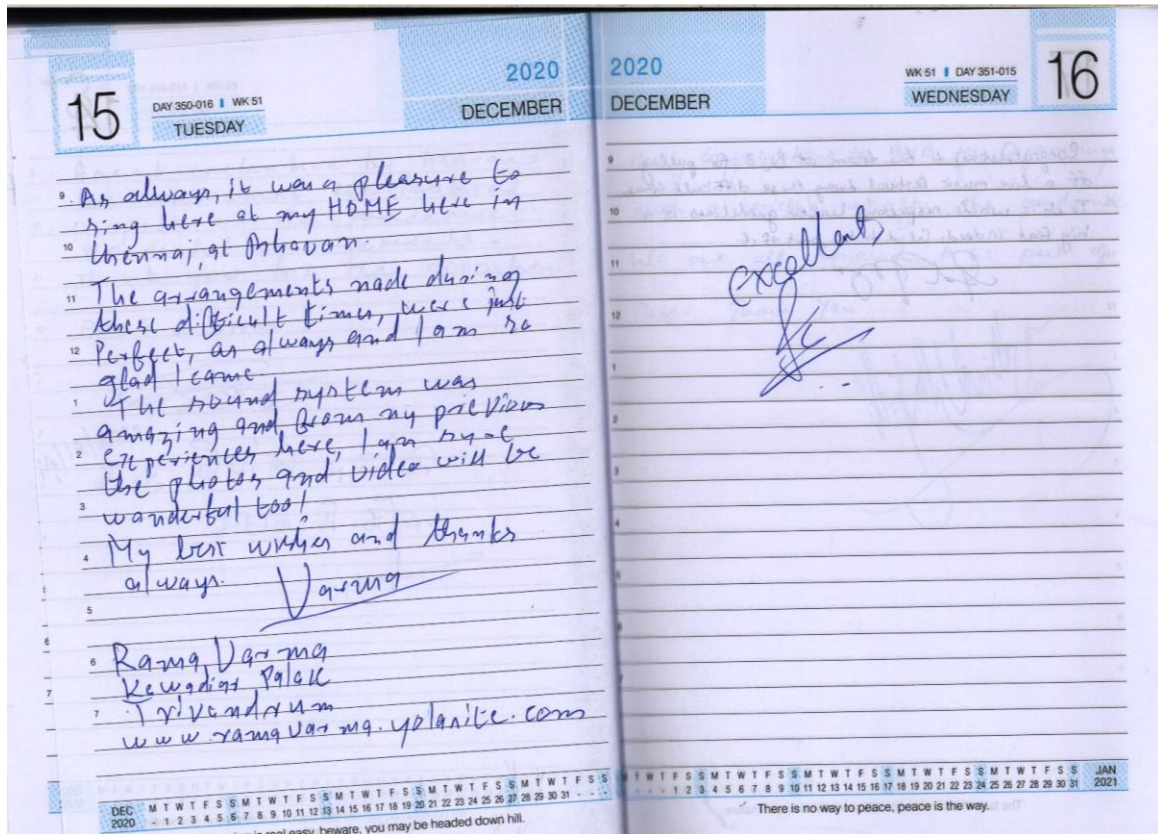 15
DAY 350-016 WK 51
TUESDAY
2020
DECEMBER
As always, it was a pleasure to
sing here at my HOME here in
Chennai, at Bhavan.
The arrangements made during
these difficult times, were just
Perfect, as always and I am so
glad I came
The sound system was
amazing and from my previous
experiences here, I am sure
the photos and video will be
wonderful too!
My best wishes and thanks
always.
Varma
Rama Varma
Kewadiar Palace
Trivandrum
www.ramavarma.yolasite.com
DEC 2020
M T W T F S S M T W T F S S M T W T F S S M T W T F S S M T W T F S S
- 1 2 3 4 5 6 7 8 9 10 11 12 13 14 15 16 17 18 19 20 21 22 23 24 25 26 27 28 29 30 31 - - -
real easy, beware, you may be headed down hill.
2020
DECEMBER
WK 51 DAY 351-015
WEDNESDAY
16
excellent,
M T W T F S S M T W T F S S M T W T F S S M T W T F S S M T W T F S S
- - - - 1 2 3 4 5 6 7 8 9 10 11 12 13 14 15 16 17 18 19 20 21 22 23 24 25 26 27 28 29 30 31
JAN 2021
There is no way to peace, peace is the way.